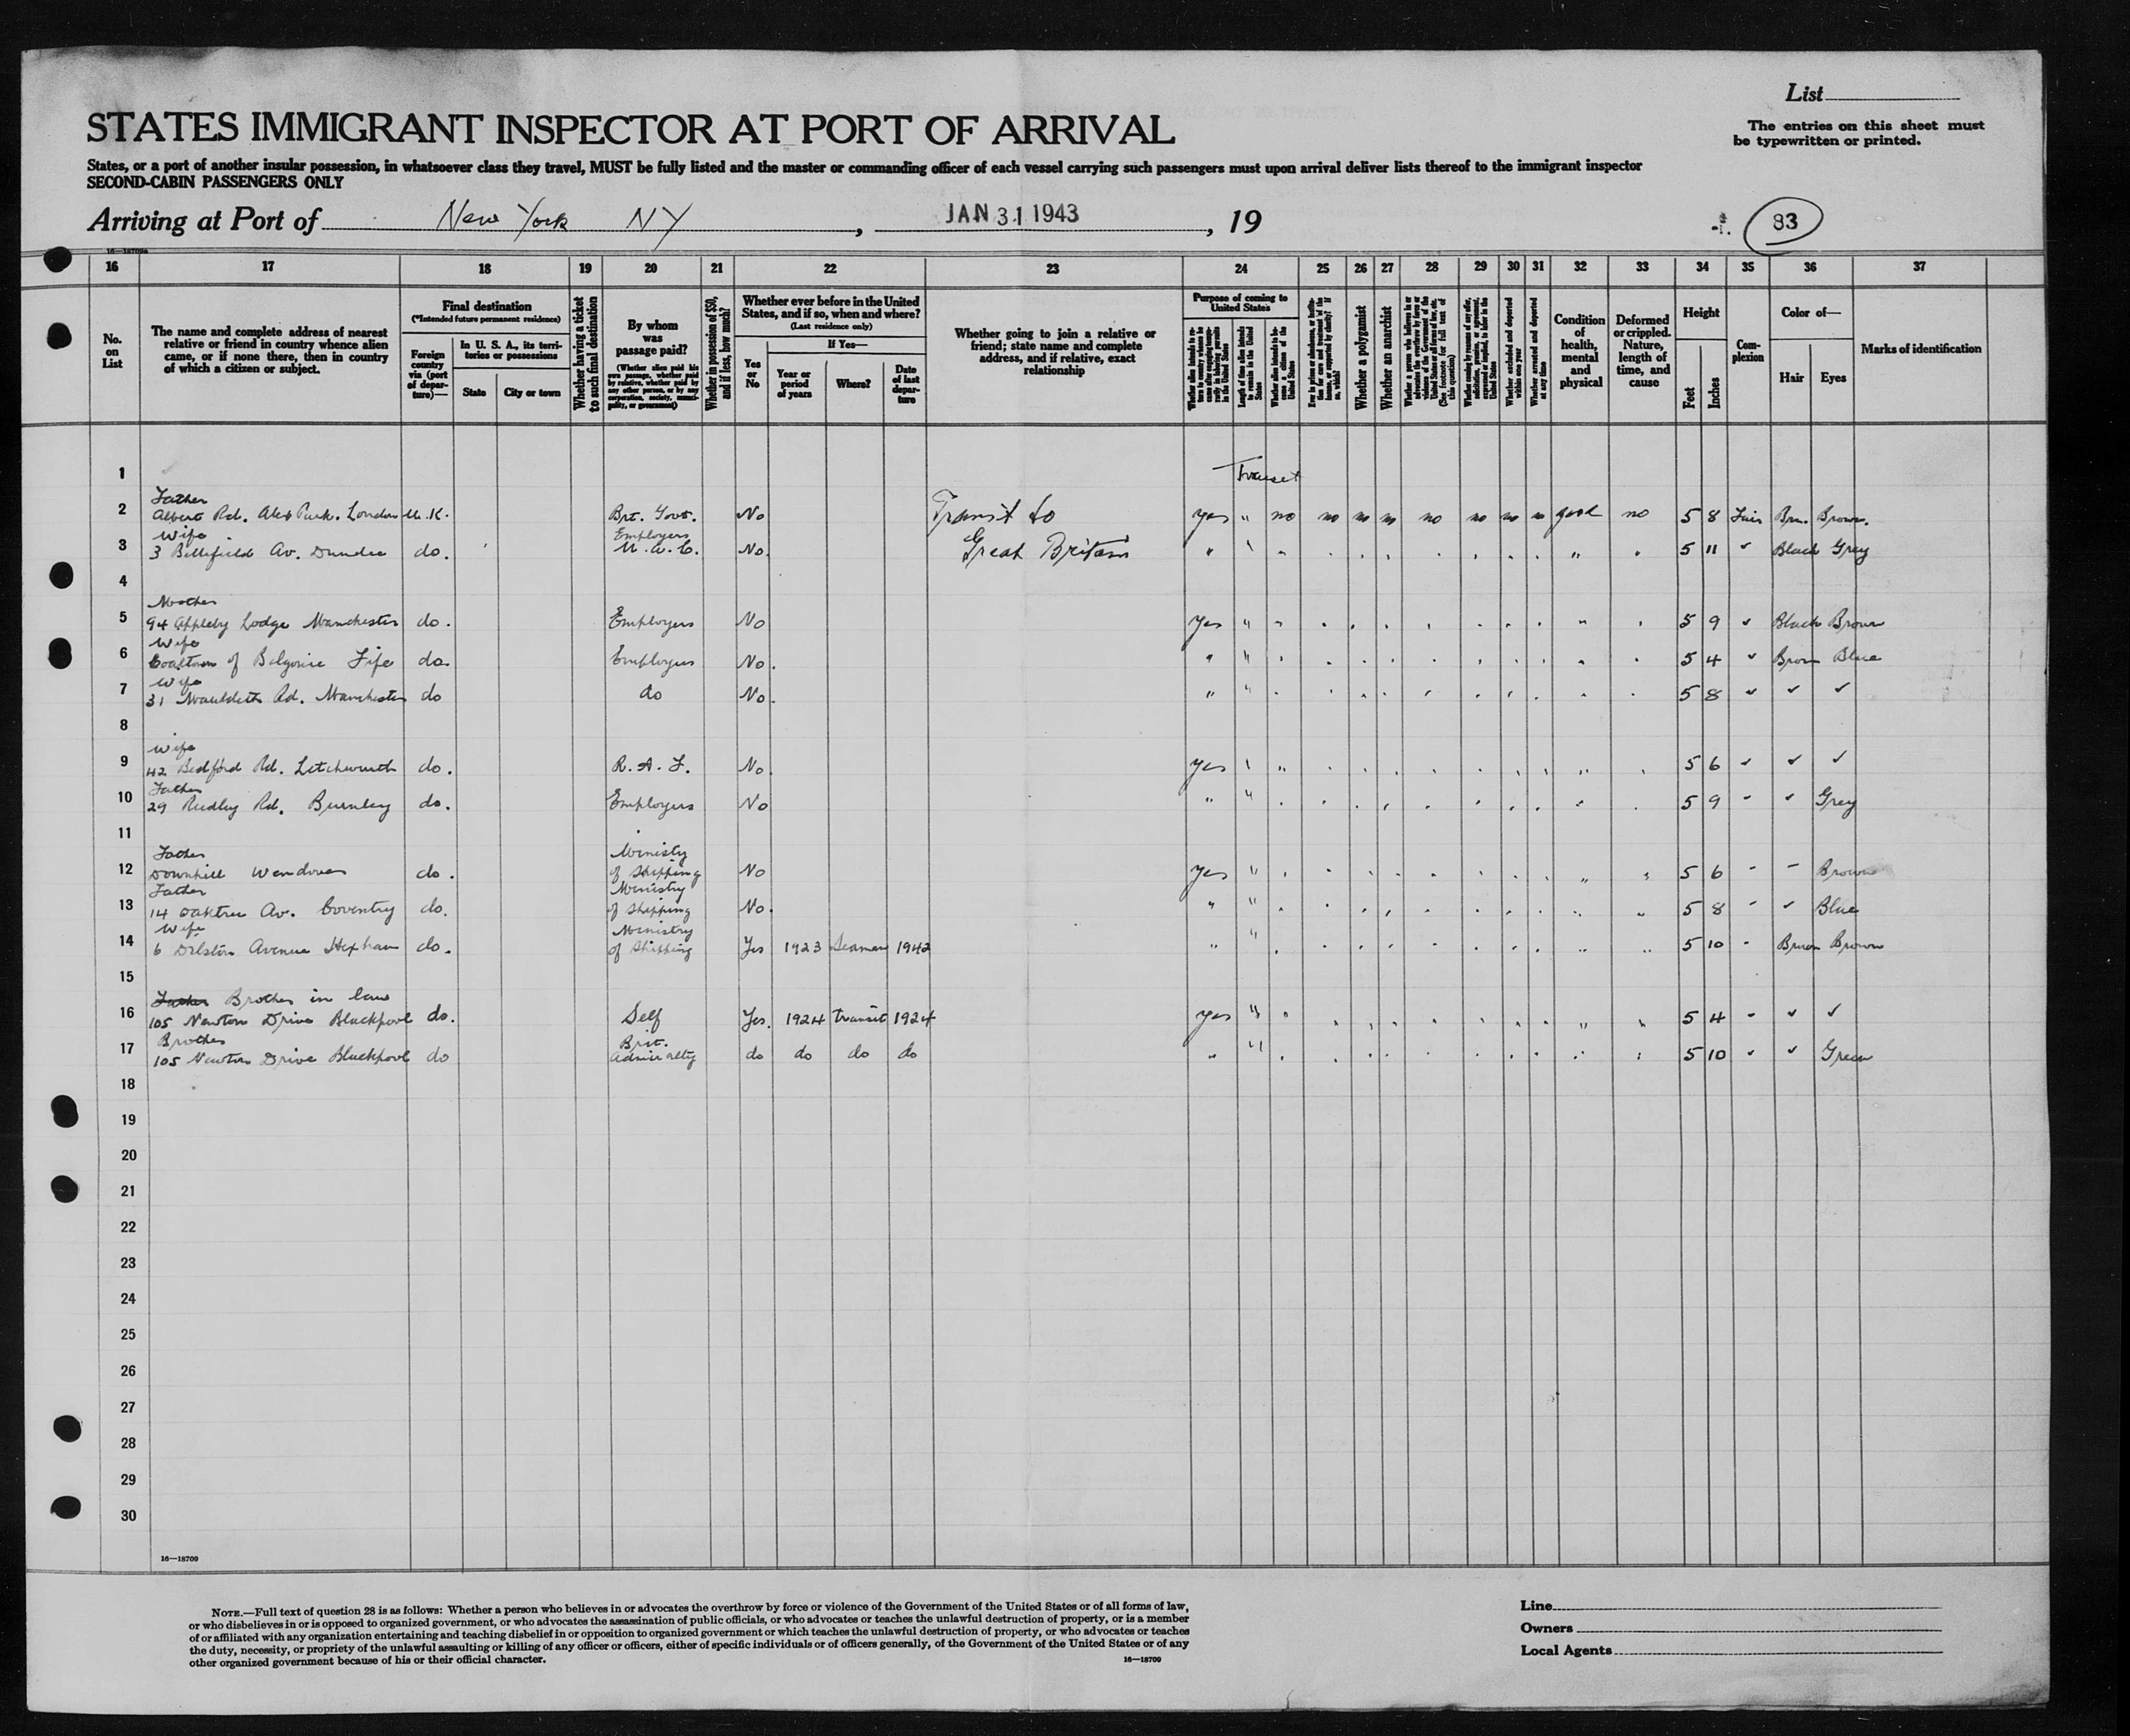 List
The entries on this sheet must
be typewritten or printed.
STATES IMMIGRANT INSPECTOR AT PORT OF ARRIVAL
States, or a port of another insular possession, in whatsoever class they travel, MUST be fully listed and the master or commanding officer of each vessel carrying such passengers must upon arrival deliver lists thereof to the immigrant inspector
SECOND-CABIN PASSENGERS ONLY
Arriving at Port of New York NY, JAN 31 1943, 19
83
16—18709a
16 17 18 19 20 21 22 23 24 25 26 27 28 29 30 31 32 33 34 35 36 37
No. on List
The name and complete address of nearest relative or friend in country whence alien came, or if none there, then in country of which a citizen or subject.
Final destination
(*Intended future permanent residence)
Foreign country via (port of departure)—
In U. S. A., its territories or possessions
State
City or town
Whether having a ticket to such final destination
By whom was passage paid?
(Whether alien paid his own passage, whether paid by relative, whether paid by any other person, or by any corporation, society, municipality, or government)
Whether in possession of $50, and if less, how much?
Whether ever before in the United States, and if so, when and where?
(Last residence only)
Yes or No
If Yes—
Year or period of years
Where?
Date of last departure
Whether going to join a relative or friend; state name and complete address, and if relative, exact relationship
Purpose of coming to United States
Length of time alien intends to remain in the United States
Whether alien intends to become a citizen of the United States
Whether a polygamist
Whether an anarchist
Whether excluded and deported within one year
Whether arrested and deported at any time
Condition of health, mental and physical
Deformed or crippled. Nature, length of time, and cause
Height
Feet
Inches
Complexion
Color of—
Hair
Eyes
Marks of identification
1 Transit
Father
2 Albert Rd. Alex Park. London U.K. Brt. Govt. No Transit to yes " no no no no no no no n good no 5 8 Fair Brn. Brown.
Wife Employers
3 3 Bellefield Av. Dundee do. No. Great Britain " " 5 11 ✓ Black Grey
4
Mother
5 94 Appleby Lodge Manchester do. Employers No Yes " 5 9 ✓ Black Brown
Wife
6 Coaltown of Balgonie Fife do. Employers No. " " 5 4 ✓ Brown Blue
Wife
7 31 Mauldeth Rd. Manchester do do No. " " 5 8 ✓ ✓ ✓
8
Wife
9 42 Bedford Rd. Letchworth do. R.A.F. No. yes " 5 6 ✓ ✓ ✓
Father
10 29 Reedley Rd. Burnley do. Employers No " " 5 9 " ✓ Grey
11
Father Ministy
12 Downhill Wendover do. of Shipping No yes " 5 6 - - Brown
Father Ministry
13 14 Oaktree Av. Coventry do. of Shipping No. " " 5 8 - ✓ Blue
Wife Ministry
14 6 Dilston Avenue Hexham do. of Shipping Yes 1923 Seaman 1942 " " 5 10 - Brown Brown
15
Father Brother in law
16 105 Newton Drive Blackpool do. Self Yes. 1924 transit 1924 yes " 5 4 - ✓ ✓
Brother Brit.
17 105 Newton Drive Blackpool do Admiralty do do do do " " 5 10 ✓ ✓ Green
18
19
20
21
22
23
24
25
26
27
28
29
30
16—18709
NOTE.—Full text of question 28 is as follows: Whether a person who believes in or advocates the overthrow by force or violence of the Government of the United States or of all forms of law,
or who disbelieves in or is opposed to organized government, or who advocates the assassination of public officials, or who advocates or teaches the unlawful destruction of property, or is a member
of or affiliated with any organization entertaining and teaching disbelief in or opposition to organized government or which teaches the unlawful destruction of property, or who advocates or teaches
the duty, necessity, or propriety of the unlawful assaulting or killing of any officer or officers, either of specific individuals or of officers generally, of the Government of the United States or of any
other organized government because of his or their official character.
16—18709
Line
Owners
Local Agents